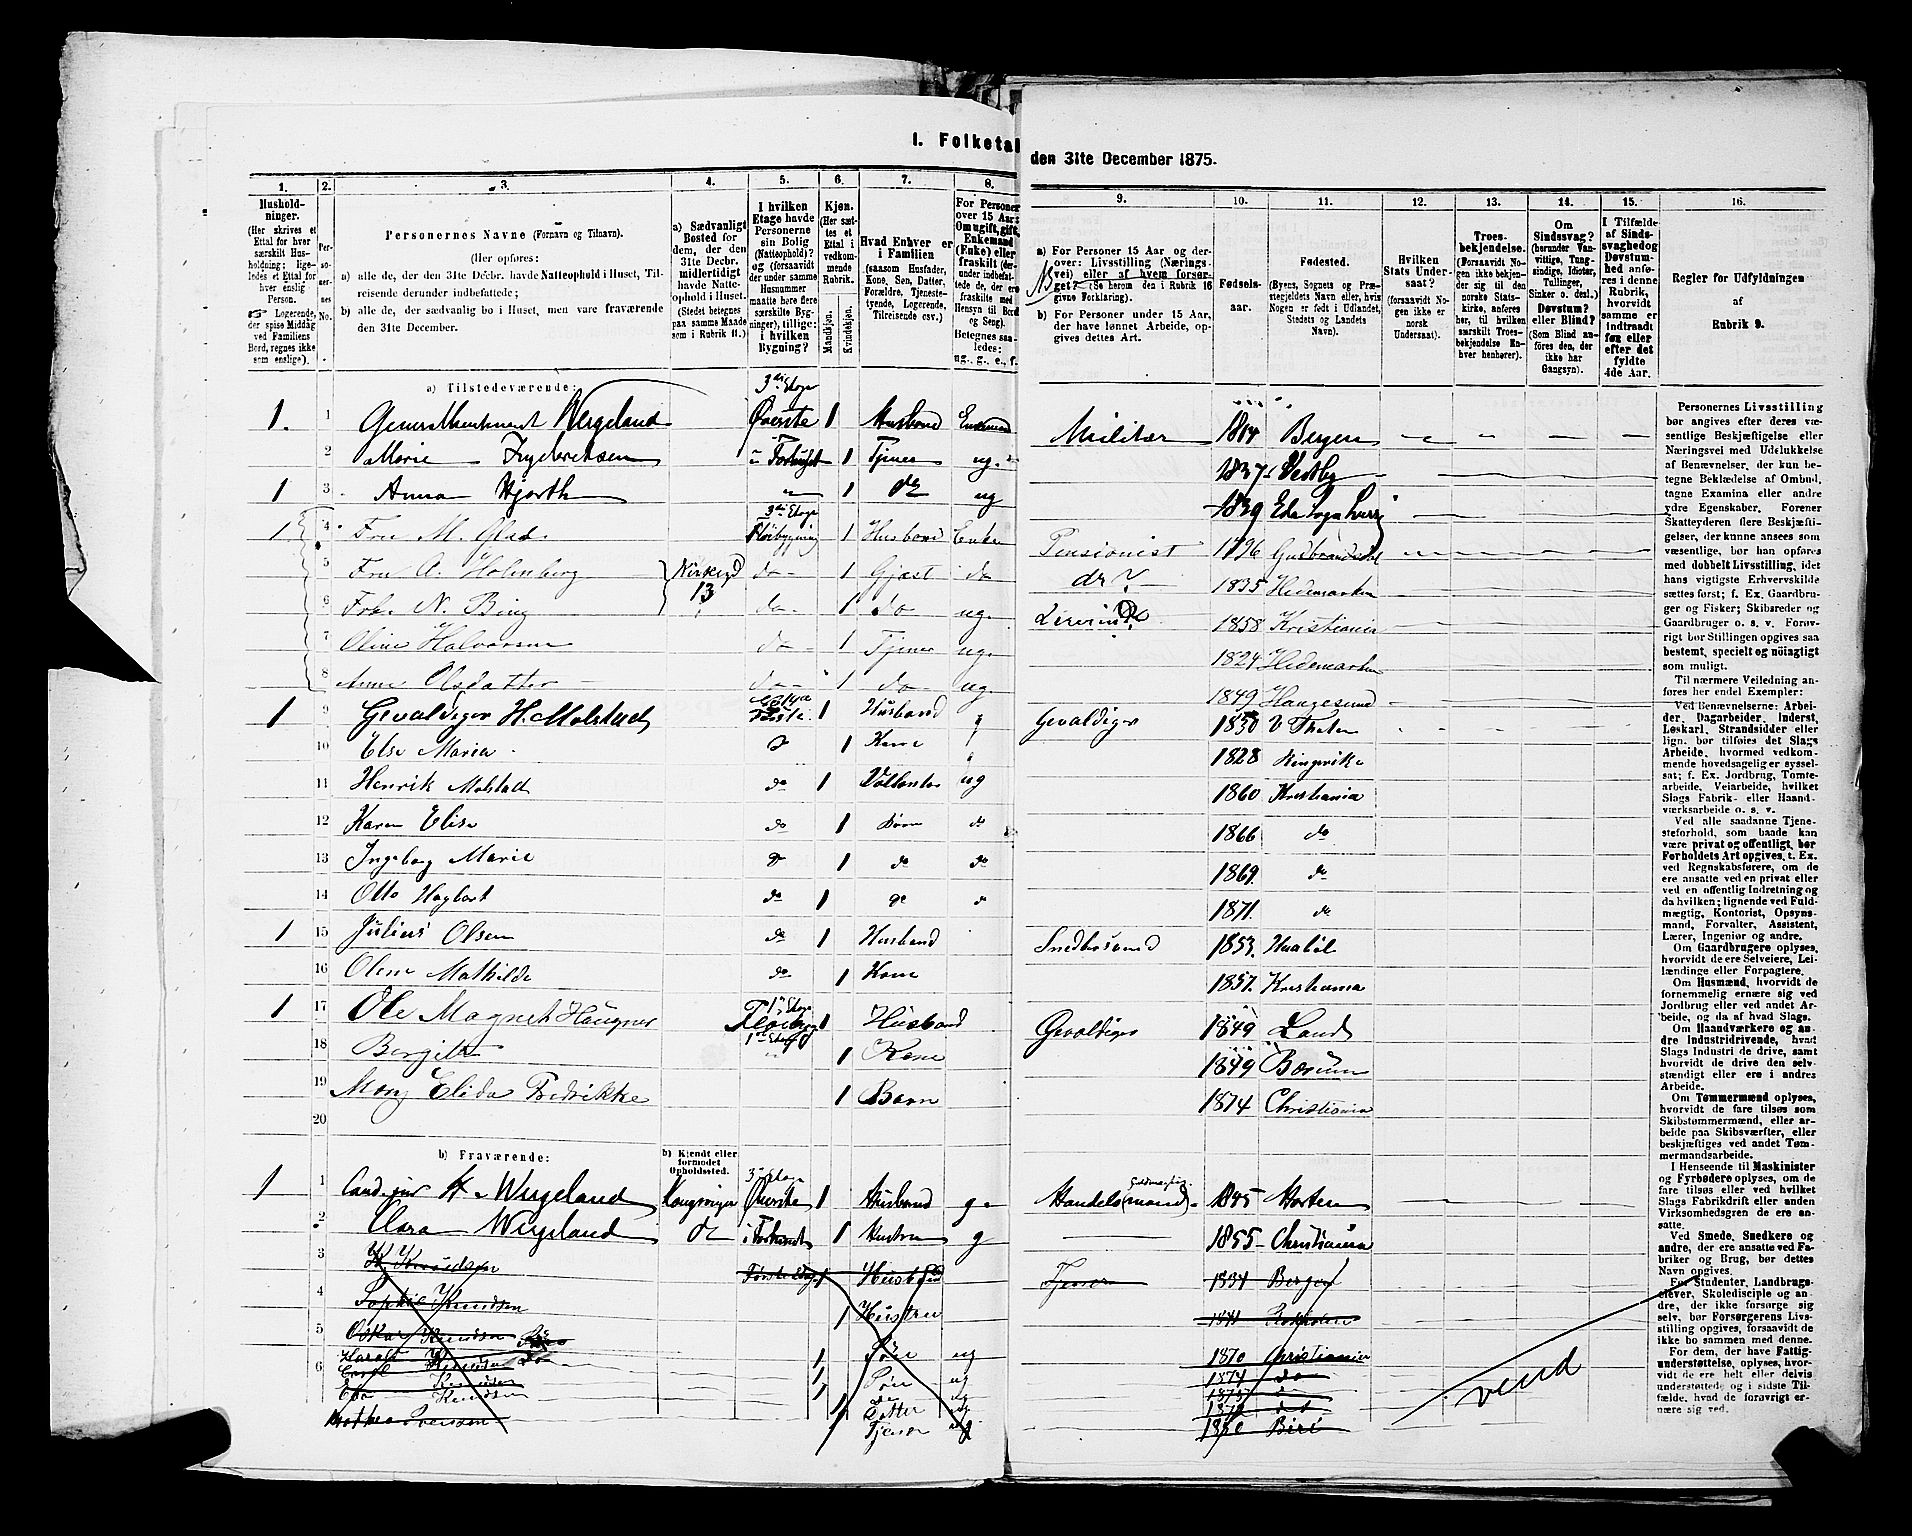 I. Folketal
den 31te December 1875.
1.
2.
3.
4.
5.
6.
7.
8.
9.
10.
11.
12.
13.
14.
15.
16.
Hushold-
ninger.
(Her skrives et
Ettal for hver
særskilt Hus-
holdning; lige-
ledes et Ettal for
hver enslig
Person.
Logerende,
der spise Middag
ved Familiens
Bord, regnes ikke
som enslige).
Per-
so-
ner-
nes
No.
Personernes Navne (Fornavn og Tilnavn).
(Her opføres:
a) alle de, der den 31te Decbr. havde Natteophold i Huset, Til-
reisende derunder indbefattede;
b) alle de, der sædvanlig bo i Huset, men vare fraværende
den 31te December.
a) Sædvanligt
Bosted for
dem, der den
31te Decbr.
midlertidigt
havde Natte-
ophold i Huset.
(Stedet betegnes
paa samme Maade
som i Rubrik 11.)
I hvilken
Etage havde
Personerne
sin Bolig
(Natteophold)?
og (forsaavidt
der under samme
Husnummer
maatte høre flere
særskilte Byg-
ninger), tillige:
i hvilken
Bygning?
Kjøn.
(Her sæt-
tes et
Ettal i
vedkom-
mende
Rubrik.
Mandkjøn.
Kvindekjøn.
Hvad Enhver er
i Familien
(saasom Husfader,
Kone, Søn, Datter,
Forældre, Tjeneste-
tyende, Logerende,
Tilreisende osv.)
For Personer
over 15 Aar:
Om ugift, gift,
Enkemand
(Enke) eller
fraskilt (der-
under indbefat-
tede de, der ere
fraskilte med
Hensyn til Bord
og Seng).
Betegnes saa-
ledes:
ug., g., e., f.
a) For Personer 15 Aar og der-
over: Livsstilling (Nærings-
vei) eller af hvem forsør-
get? (Se herom den i Rubrik 16
givne Forklaring).
b) For Personer under 15 Aar,
der have lønnet Arbeide, op-
gives dettes Art.
Fødsels-
aar.
Fødested.
(Byens, Sognets og Præ-
stegjeldets Navn eller, hvis
Nogen er født i Udlandet,
Stedets og Landets
Navn).
Hvilken
Stats Under-
saat?
(forsaavidt No-
gen ikke er
norsk
Undersaat).
Troes-
bekjendelse.
(Forsaavidt No-
gen ikke bekjen-
der sig til den
norske Stats-
kirke, anføres
her, til hvilken
særskilt Troes-
bekjendelse En-
hver henhører).
Om
Sindssvag?
(herunder Van-
vittige, Tung-
sindige, Idioter,
Tullinger,
Sinker o. desl.)
Døvstum?
eller Blind?
(Som Blind an-
føres den, der
ikke har
Gangsyn).
I Tilfælde
af Sinds-
svaghed og
Døvstum-
hed anfø-
res i denne
Rubrik,
hvorvidt
samme er
indtraadt
før eller
efter det
fyldte
4de Aar.
Regler for Udfyldningen
af
Rubrik 9.
a) Tilstedeværende:
3die Etage
1. 1 Wergeland Øverste 1 Husbond Enkemand Militær 1814 Bergen
2 Marie Ingebretsen i Forhuset 1 Tjener ug. 1837 Vestby
1 3 Anna Hjorth 1 do ug 1839
3die Etage
1 4 Fru M. Glad. Fløibygning 1 Husbond Enke Pensionist 1796 Gudbrandsdal
5 Fru A. Holmberg do 1 Gjæst do do? 1835 Hedemarken
13
6 Frk. N. Bing do 1 do ug. 1858 Kristiania
7 Oline Halvorsen do 1 Tjener ug. 1824 Hedemarken
8 Anne Olsdatter do 1 do ug. 1849 Haugesund
1 9 Gevaldiger H. Molstad 1 Husbond g Gevaldiger 1830 V. Thoten
10 Else Maria 1 Kone 1828 Ringerike
11 Henrik Molstad do 1 ug 1860 Kristiania
12 Karen Elise do 1 Børn do 1866 do
13 Ingeborg Marie do 1 do do 1869. do
14 Otto Hagbart do 1 do 1871. do
1 15 Julius Olsen do 1 Husbond 1853.
16 Oline Mathilde do 1 Kone 1857. Kristiania
1ste Etage
1 17 Ole Magnus Haugner 1 Husbond Gevaldiger 1849 Land
1ste Etage
18 Bergite 1 Kone 1849 Bærum
19 Elida Fredrikke 1 Barn 1874 Christiania
20
b) Fraværende:
b) Kjendt eller
formodet
Opholdssted.
3die Etage
1 1 Cand. jur. H. Wergeland Kongsvinger Øverste 1 Husbond g. Handels(mand) 1845 Horten
2 Clara Wergeland do i Forhuset 1 Hustru g 1855 Christiania
3 K Knudsen Første Etage 1 Husbond 1834 Bergen
4 Sophie Knudsen 1 Hustru
5 Oskar Knudsen Søn
Harald Knudsen do 1 Søn ug 1870 Christiania
6 Knudsen 1 Søn ug 1874 do
Knudsen Datter
Svensen 1 Tjener ug Biri
vend
Personernes Livsstilling
bør angives efter deres væ-
sentlige Beskjæftigelse eller
Næringsvei med Udelukkelse
af Benævnelser, der kun be-
tegne Beklædelse af Ombud,
tagne Examina eller andre
ydre Egenskaber. Forener
Skatteyderen flere Beskjæfti-
gelser, der kunne ansees som
væsentlige, bør han opføres
med dobbelt Livsstilling, idet
hans vigtigste Erhvervskilde
sættes først; f. Ex. Gaardbru-
ger og Fisker; Skibsreder og
Gaardbruger o. s. v. Forøv-
rigt bør Stillingen opgives saa
bestemt, specielt og nøiagtigt
som muligt.
Til nærmere Veiledning an-
føres her endel Exempler:
Ved Benævnelserne: Arbei-
der, Dagarbeider, Inderst,
Løskarl, Strandsidder eller
lign. bør tilføies det Slags
Arbeide, hvormed vedkom-
mende hovedsagelig er syssel-
sat; f. Ex. Jordbrug, Tomte-
arbeide, Veiarbeide, hvilket
Slags Fabrik- eller Haand-
værksarbeide o. s. v.
Ved alle saadanne Tjene-
steforhold, som baade kan
være privat og offentligt, bør
Forholdets Art opgives, t. Ex.
ved Regnskabsførere, om de
ere ansatte ved en privat eller
ved en offentlig Indretning og
da hvilken; lignende ved Fuld-
mægtig, Kontorist, Opsyns-
mand, Forvalter, Assistent,
Lærer, Ingeniør og andre.
Om Gaardbrugere oplyses,
hvorvidt de ere Selveiere, Lei-
lændinge eller Forpagtere.
Om Husmænd, hvorvidt de
fornemmelig ernære sig ved
Jordbrug eller ved andet Ar-
beide, og da af hvad Slags.
Om Haandværkere og an-
dre Industridrivende, hvad
Slags Industri de drive, samt
hvorvidt de drive den selv-
stændigt eller ere i andres
Arbeide.
Om Tømmermænd oplyses,
hvorvidt de fare tilsøs som
Skibstømmermænd, eller ar-
beide paa Skibsværfter, eller
beskjæftiges ved andet Tøm-
mermandsarbeide.
I Henseende til Maskinister
og Fyrbødere oplyses, om de
fare tilsøs eller ved hvilket
Slags Fabrikdrift eller anden
Virksomhedsgren de ere an-
satte.
Ved Smede, Snedkere og
andre, der ere ansatte ved Fa-
briker og Brug, bør dettes
Navn opgives.
For Studenter, Landbrugs-
elever, Skoledisciple og an-
dre, der ikke forsørge sig
selv, bør Forsørgerens Livs-
stilling opgives, forsaavidt de
ikke bo sammen med denne.
For dem, der have Fattig-
understøttelse, oplyses, hvor-
vidt de ere helt eller delvis
understøttede og i sidste Til-
fælde, hvad de forøvrigt er-
nære sig ved.